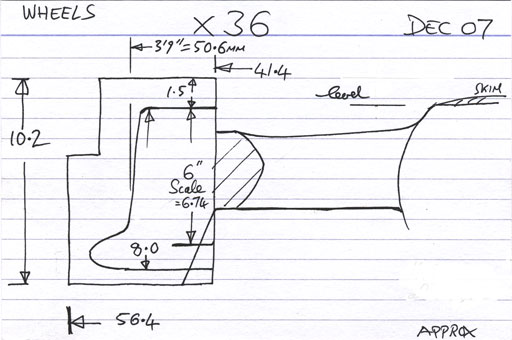 WHEELS
X 36
DEC 07
3'9"=50.6MM
41.4
1.5
level
SKIM
10.2
6"
Scale
=6.74
8.0
56.4
APPROX